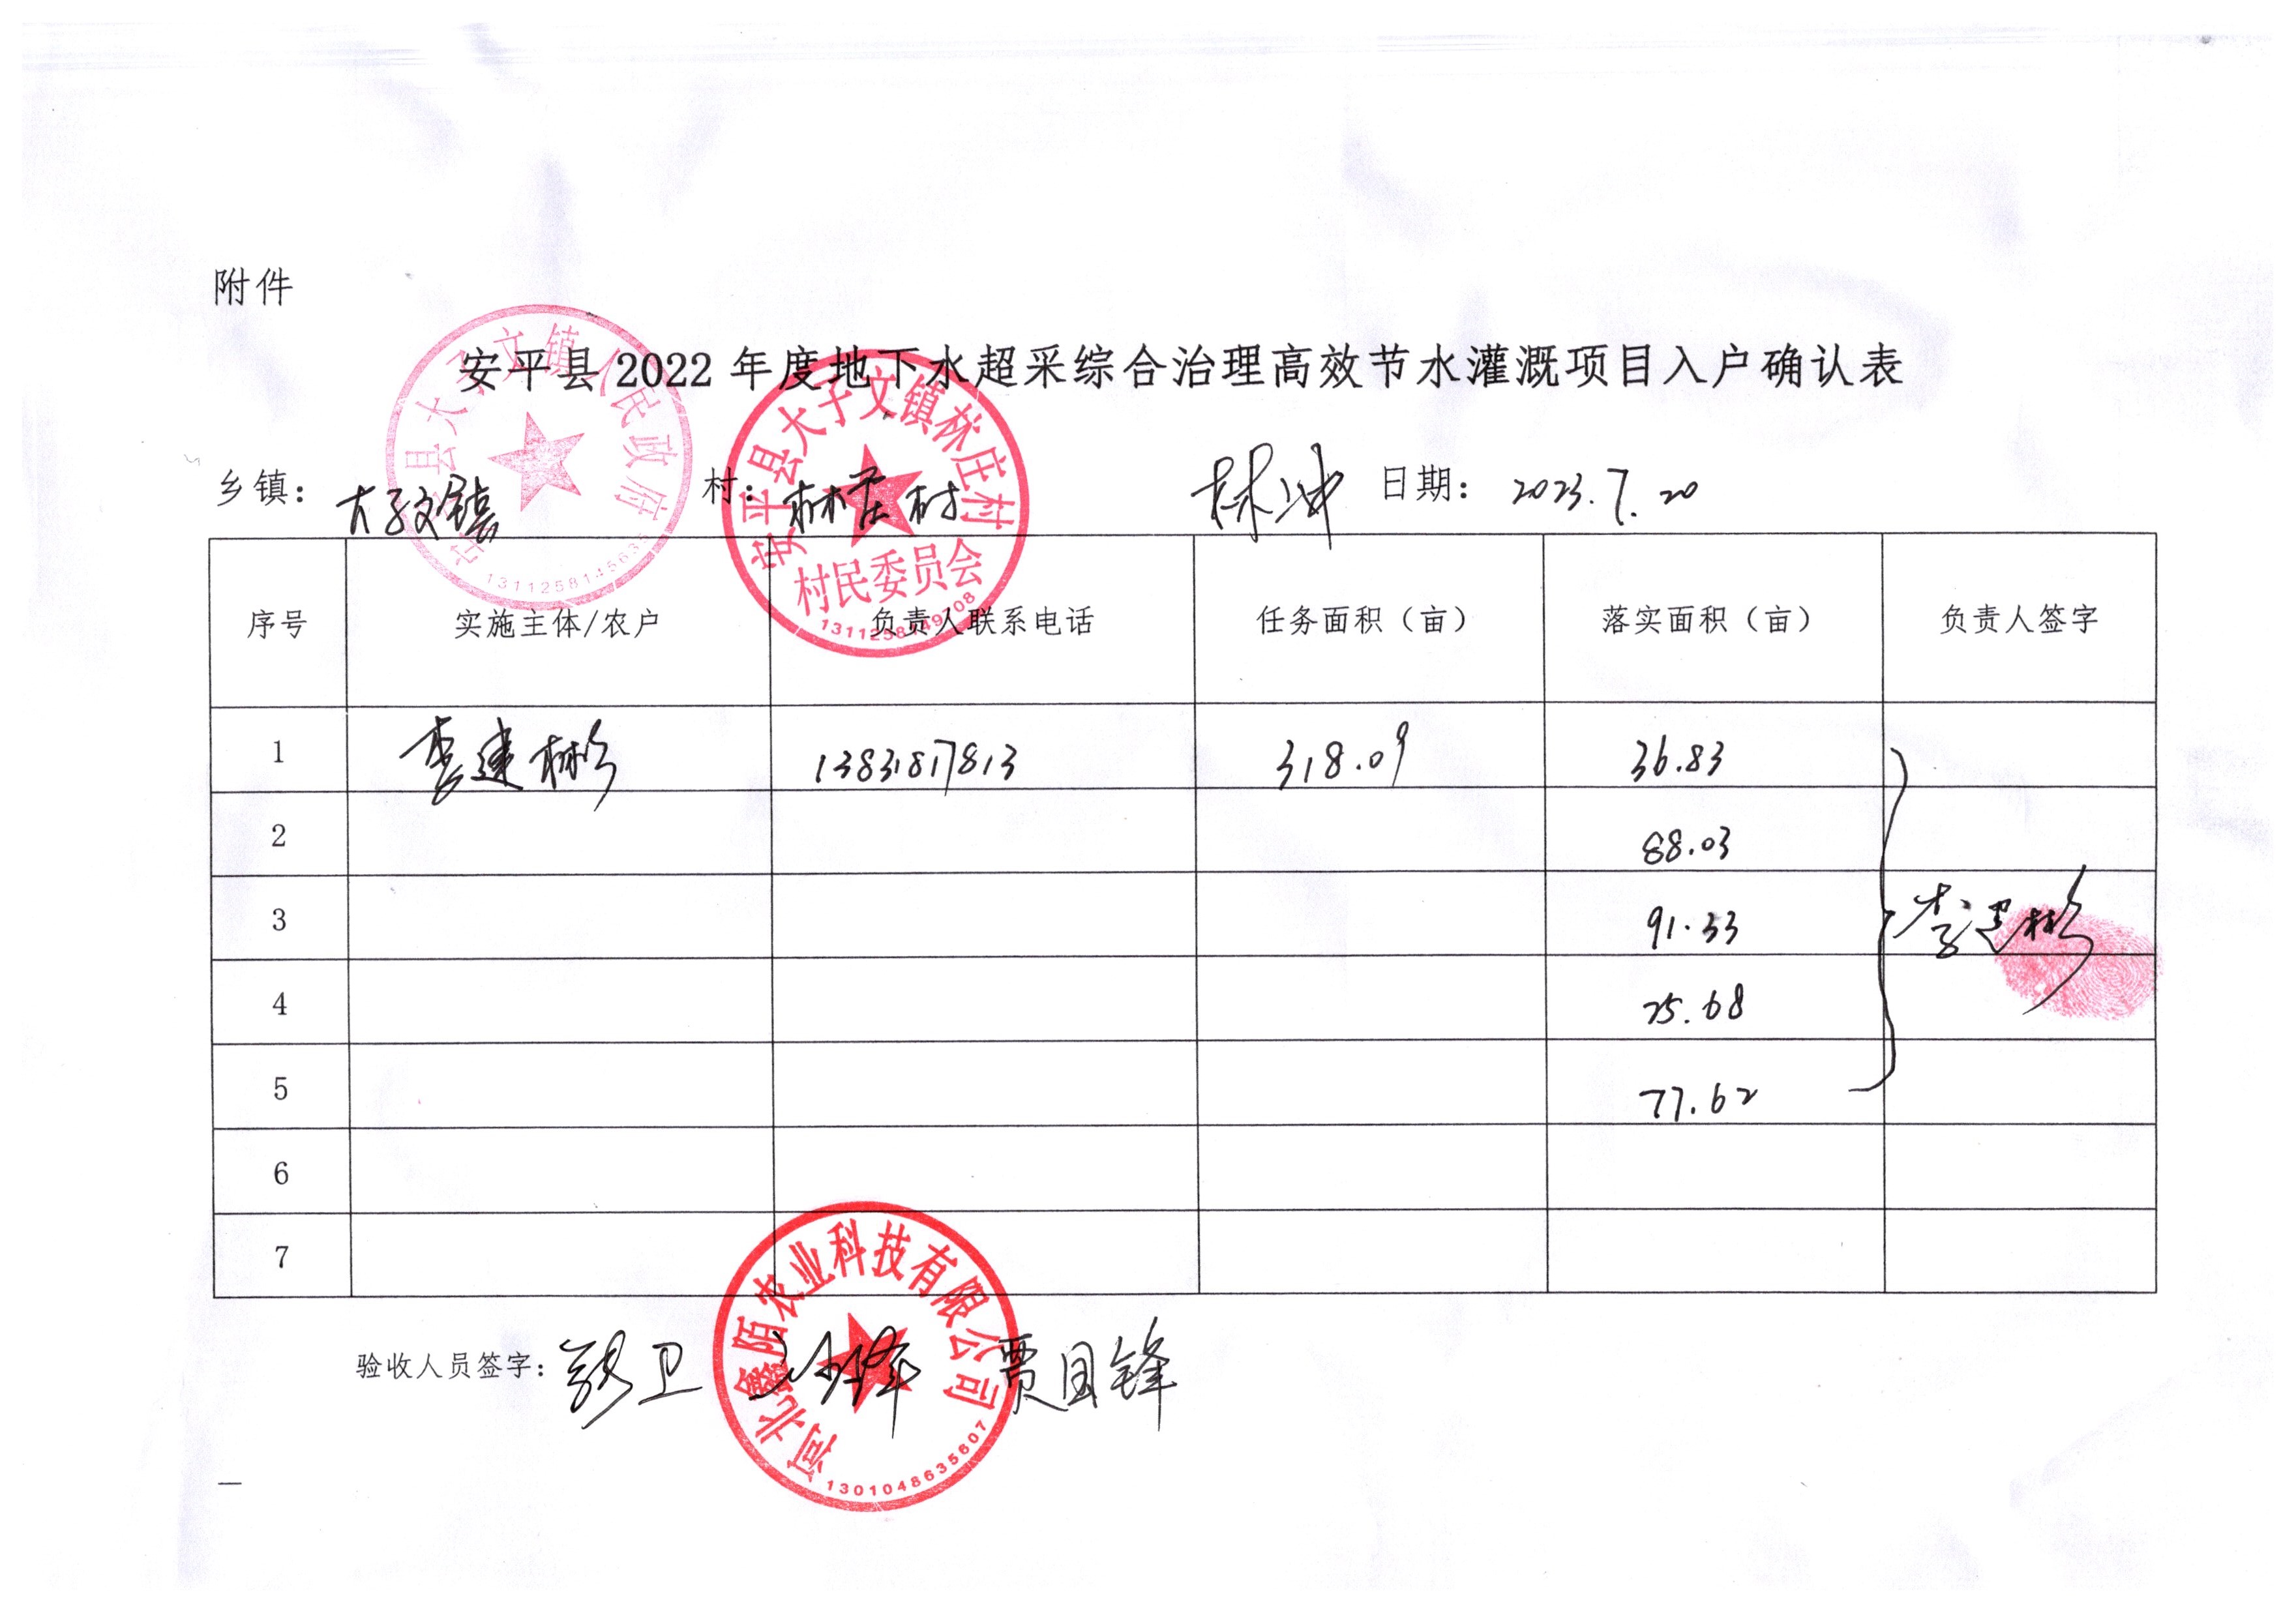 附件
安平县2022年度地下水超采综合治理高效节水灌溉项目入户确认表
安平县大子文镇人民政府
1311258145635
安平县大子文镇林庄村
村民委员会
1311258449708
乡镇：大子文镇 村：林庄村 林冲 日期：2023.7.20
序号 实施主体/农户 负责人联系电话 任务面积（亩） 落实面积（亩） 负责人签字
1 李建彬 1383187813 318.09 36.83
2 88.03
3 91.33 李建彬
4 25.68
5 77.62
6
7
验收人员签字： 卫 贾国锋
河北鑫陌农业科技有限公司
1301048635607